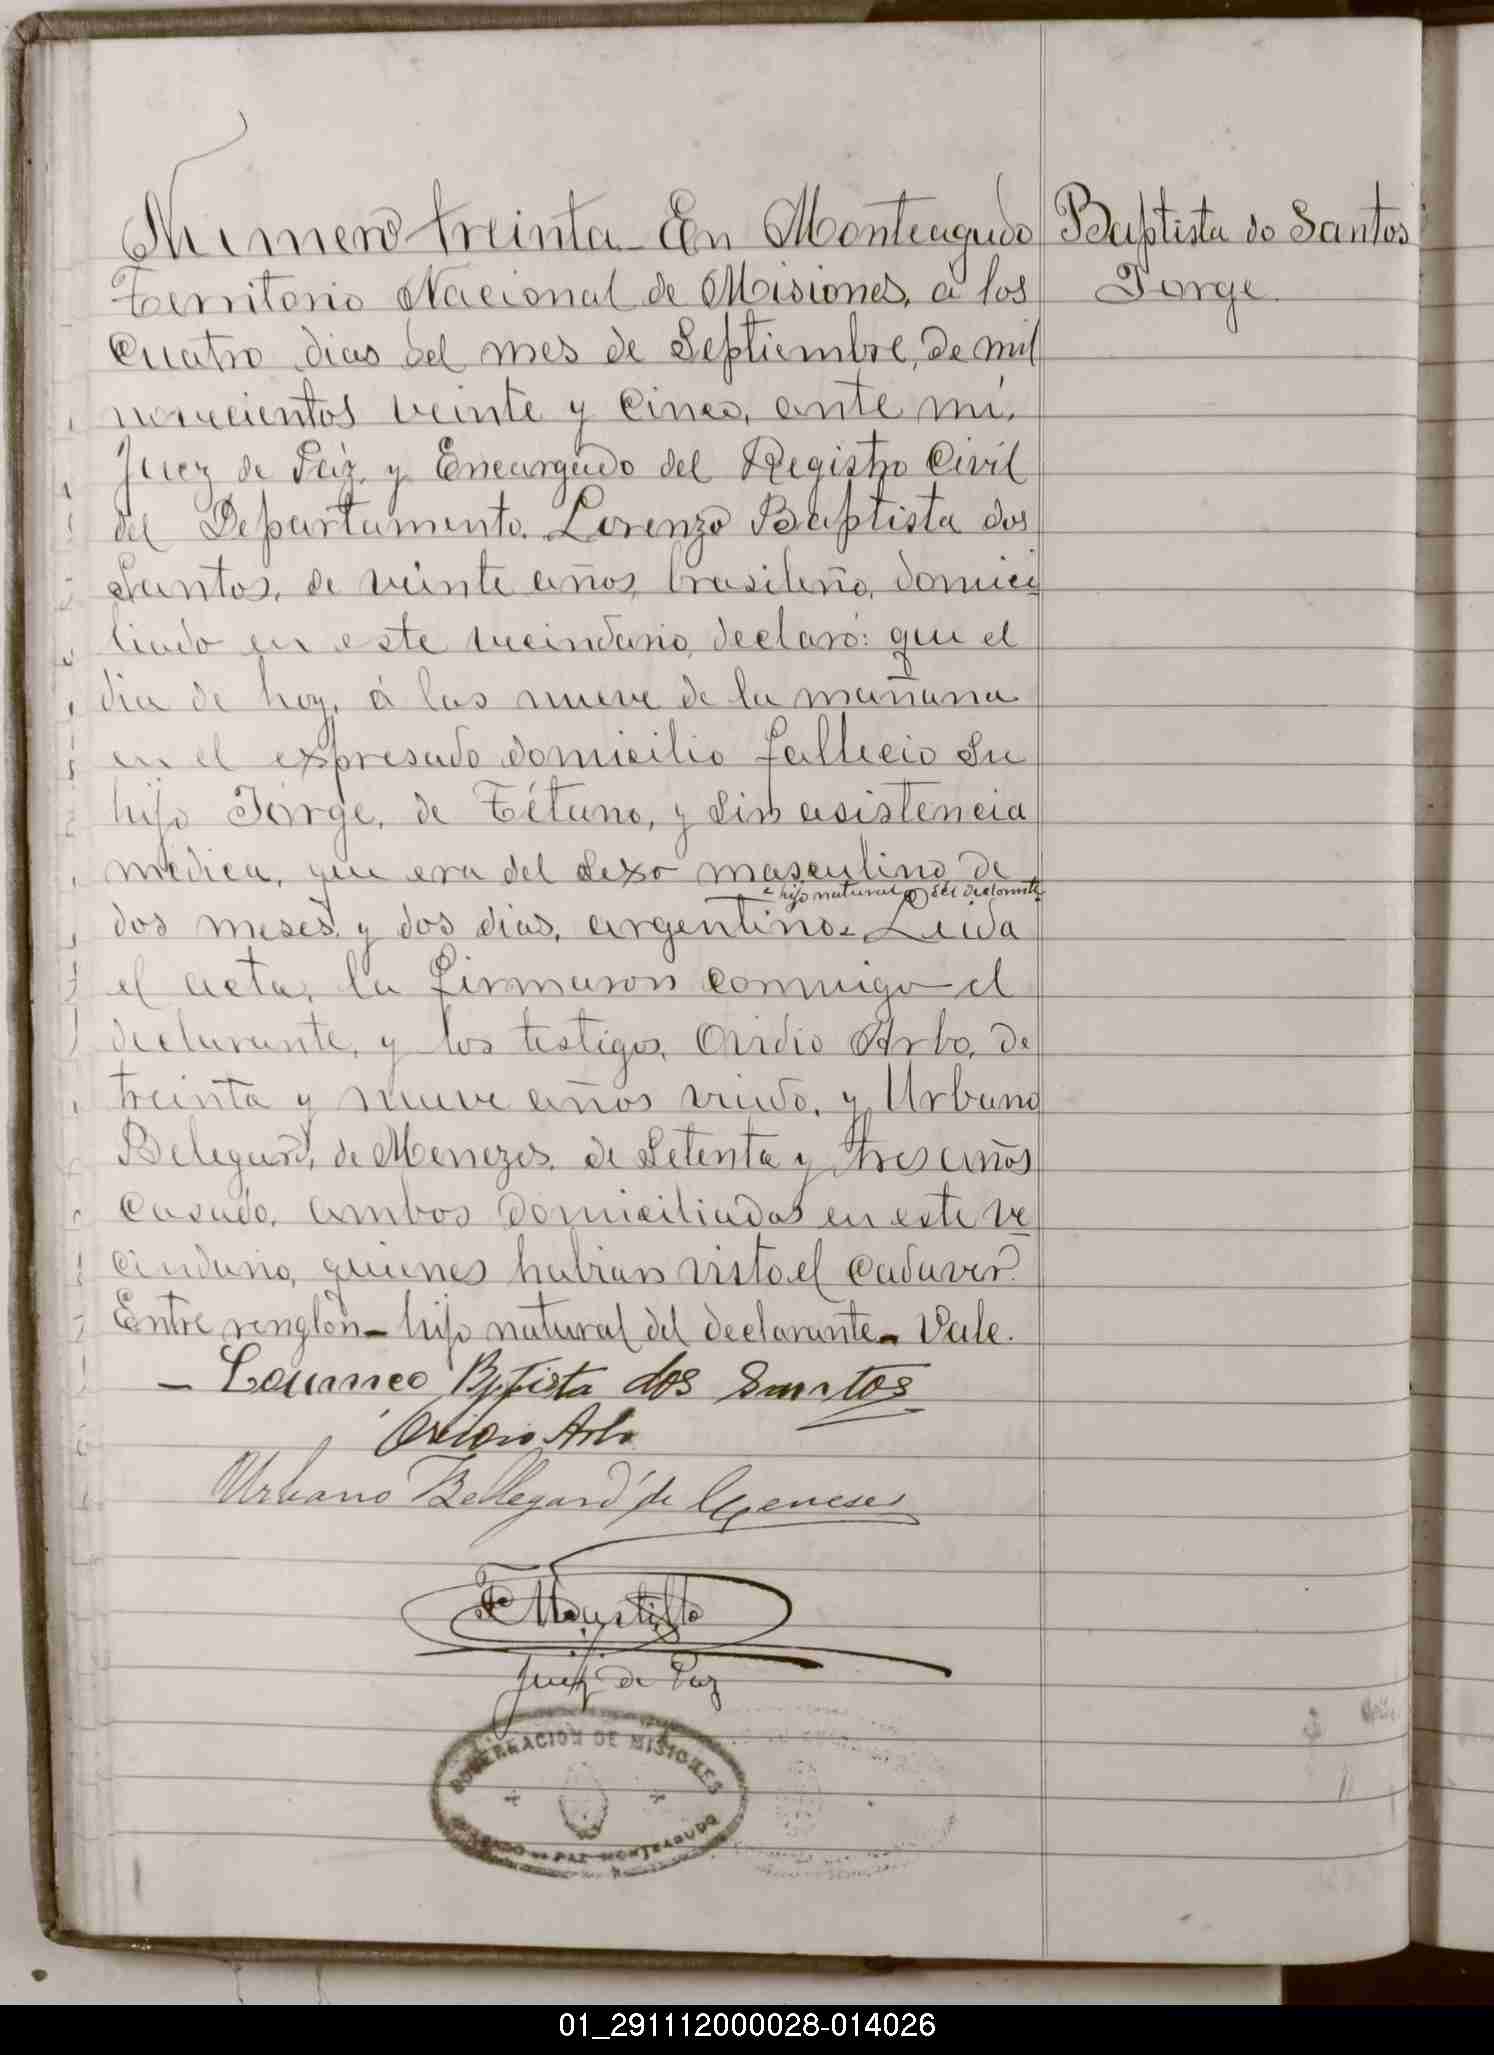 Numero treinta. En Monteagudo
Territorio Nacional de Misiones, á los
cuatro dias del mes de Septiembre, de mil
novecientos veinte y cinco, ante mí,
Juez de Páz, y Encargado del Registro Civil
del Departamento. Lorenzo Baptista dos
Santos, de veinte años, brasileño, domici
liado en este vecindario, declaró: que el
dia de hoy, á las nueve de la mañana
en el expresado domicilio fallecio su
hijo Jorge, de Tétano, y sin asistencia
medica, que era del sexo masculino de
hijo natural del declarante
dos meses y dos dias, argentino. Leida
el acta, la firmaron conmigo el
declarante, y los testigos, Ovidio Arbo, de
treinta y nueve años viudo, y Urbano
Belegard, de Menezes, de setenta y tres años
casado, ambos domiciliados en este ve
cindario, quienes habian visto el cadaver.
Entre renglon - hijo natural del declarante - Vale.
Baptista do Santos
Jorge.
- Lourenco Bptista dos Santos
Ovidio Arbo
Urbano Bellegard de Meneses
Juez de Paz
GOBERNACION DE MISIONES
JUZGADO DE PAZ MONTEAGUDO
01_291112000028-014026